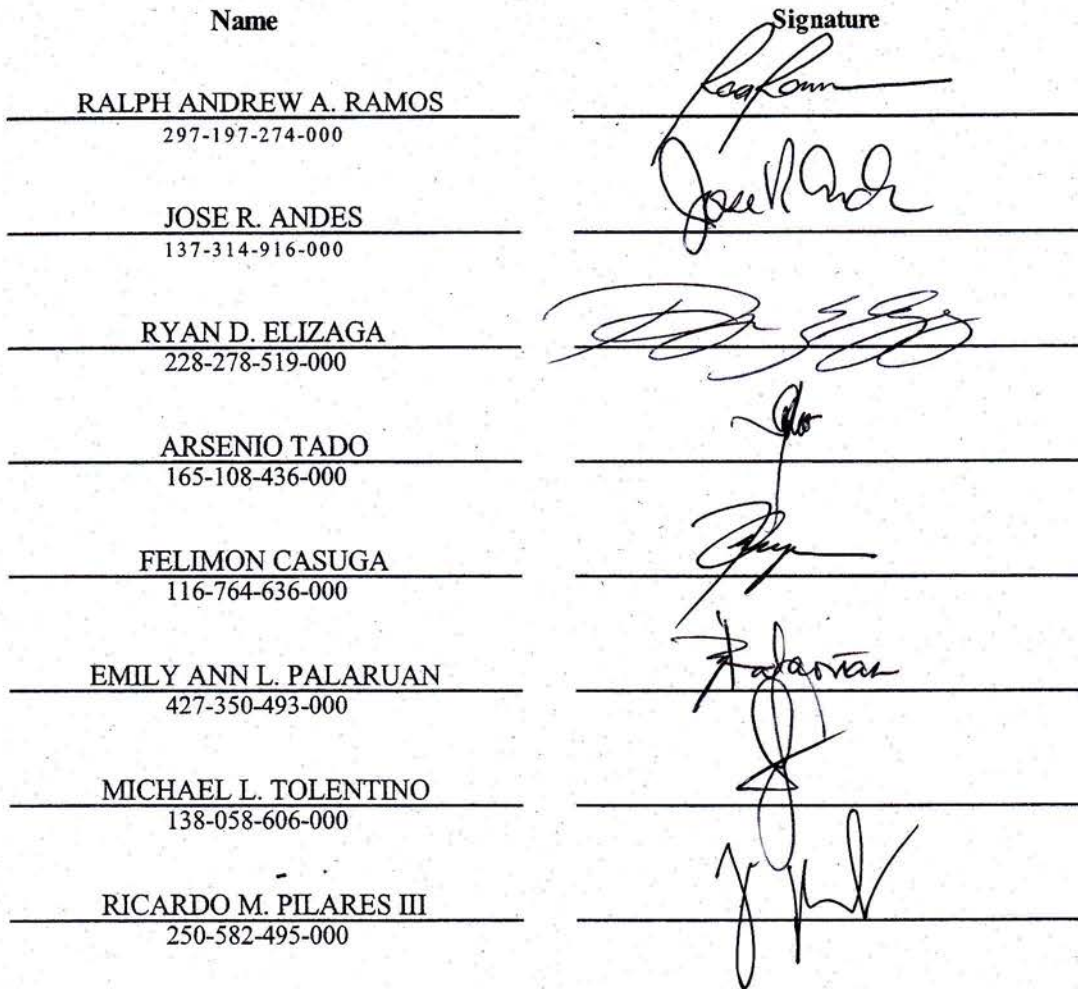 Name Signature
RALPH ANDREW A. RAMOS
297-197-274-000
JOSE R. ANDES Jose R Andes
137-314-916-000
RYAN D. ELIZAGA
228-278-519-000
ARSENIO TADO
165-108-436-000
FELIMON CASUGA
116-764-636-000
EMILY ANN L. PALARUAN Palaruan
427-350-493-000
MICHAEL L. TOLENTINO
138-058-606-000
RICARDO M. PILARES III
250-582-495-000